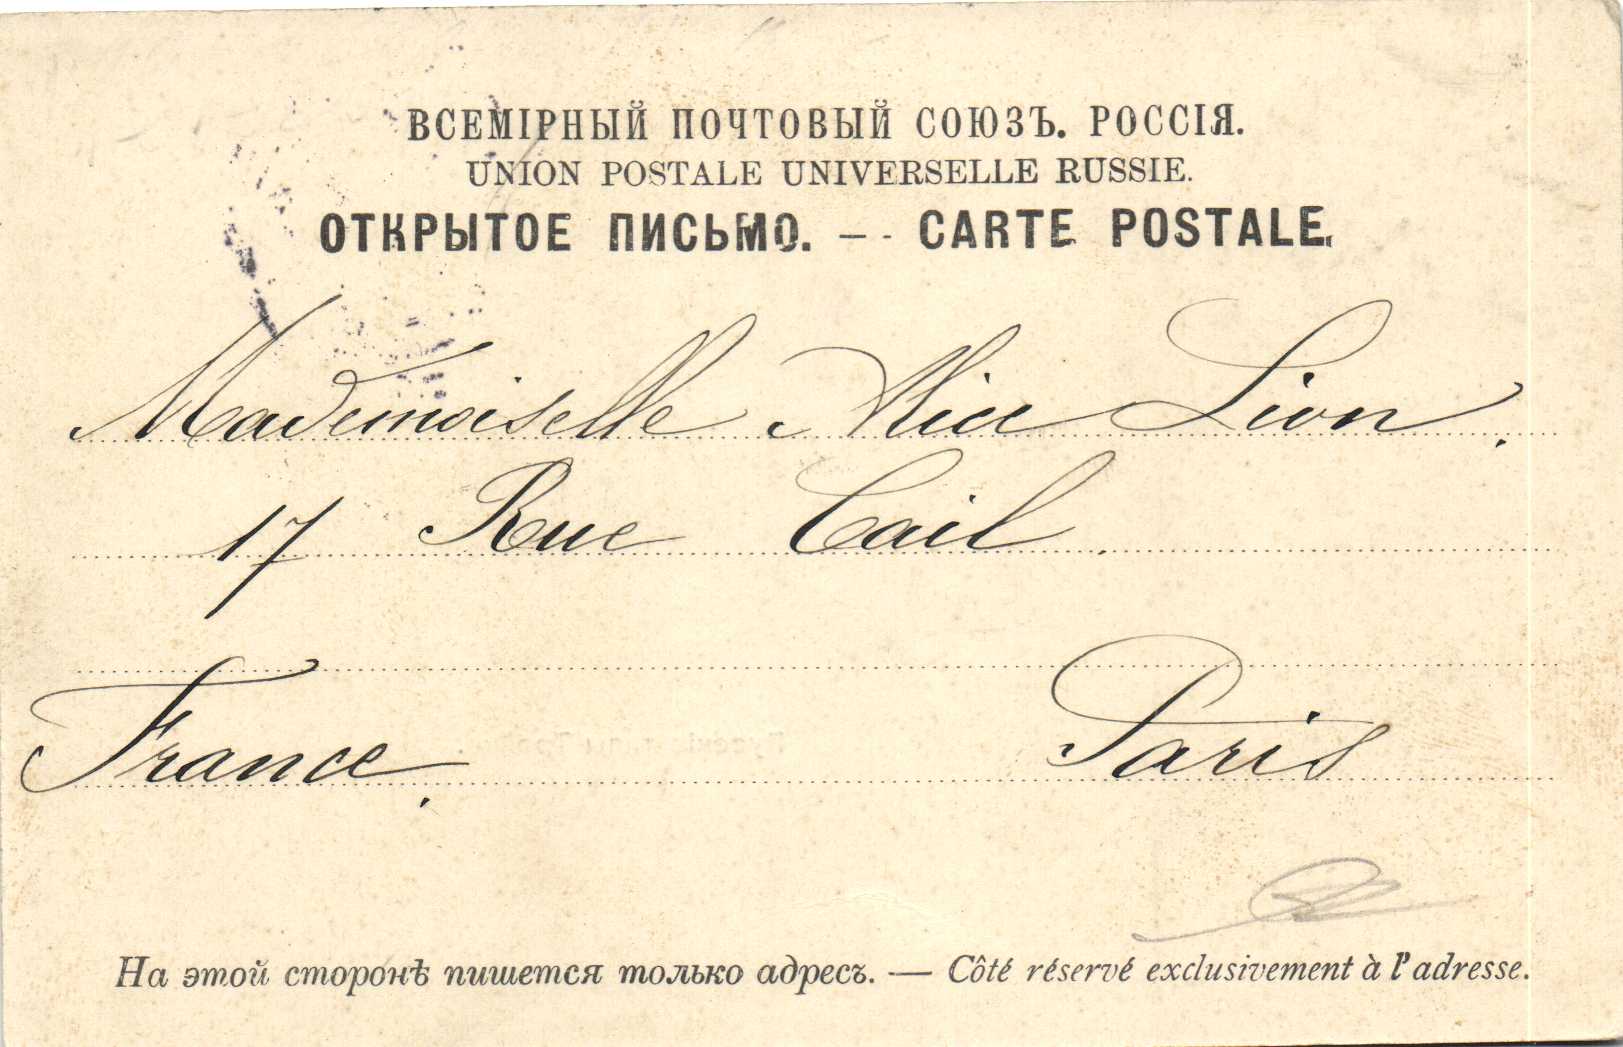 ВСЕМІРНЫЙ ПОЧТОВЫЙ СОЮЗЪ. РОССІЯ.
UNION POSTALE UNIVERSELLE RUSSIE.
ОТКРЫТОЕ ПИСЬМО. — - CARTE POSTALE.
Mademoiselle Alice Lion.
17 Rue Cail.
France. Paris
На этой сторонѣ пишется только адресъ. — Côté réservé exclusivement à l'adresse.